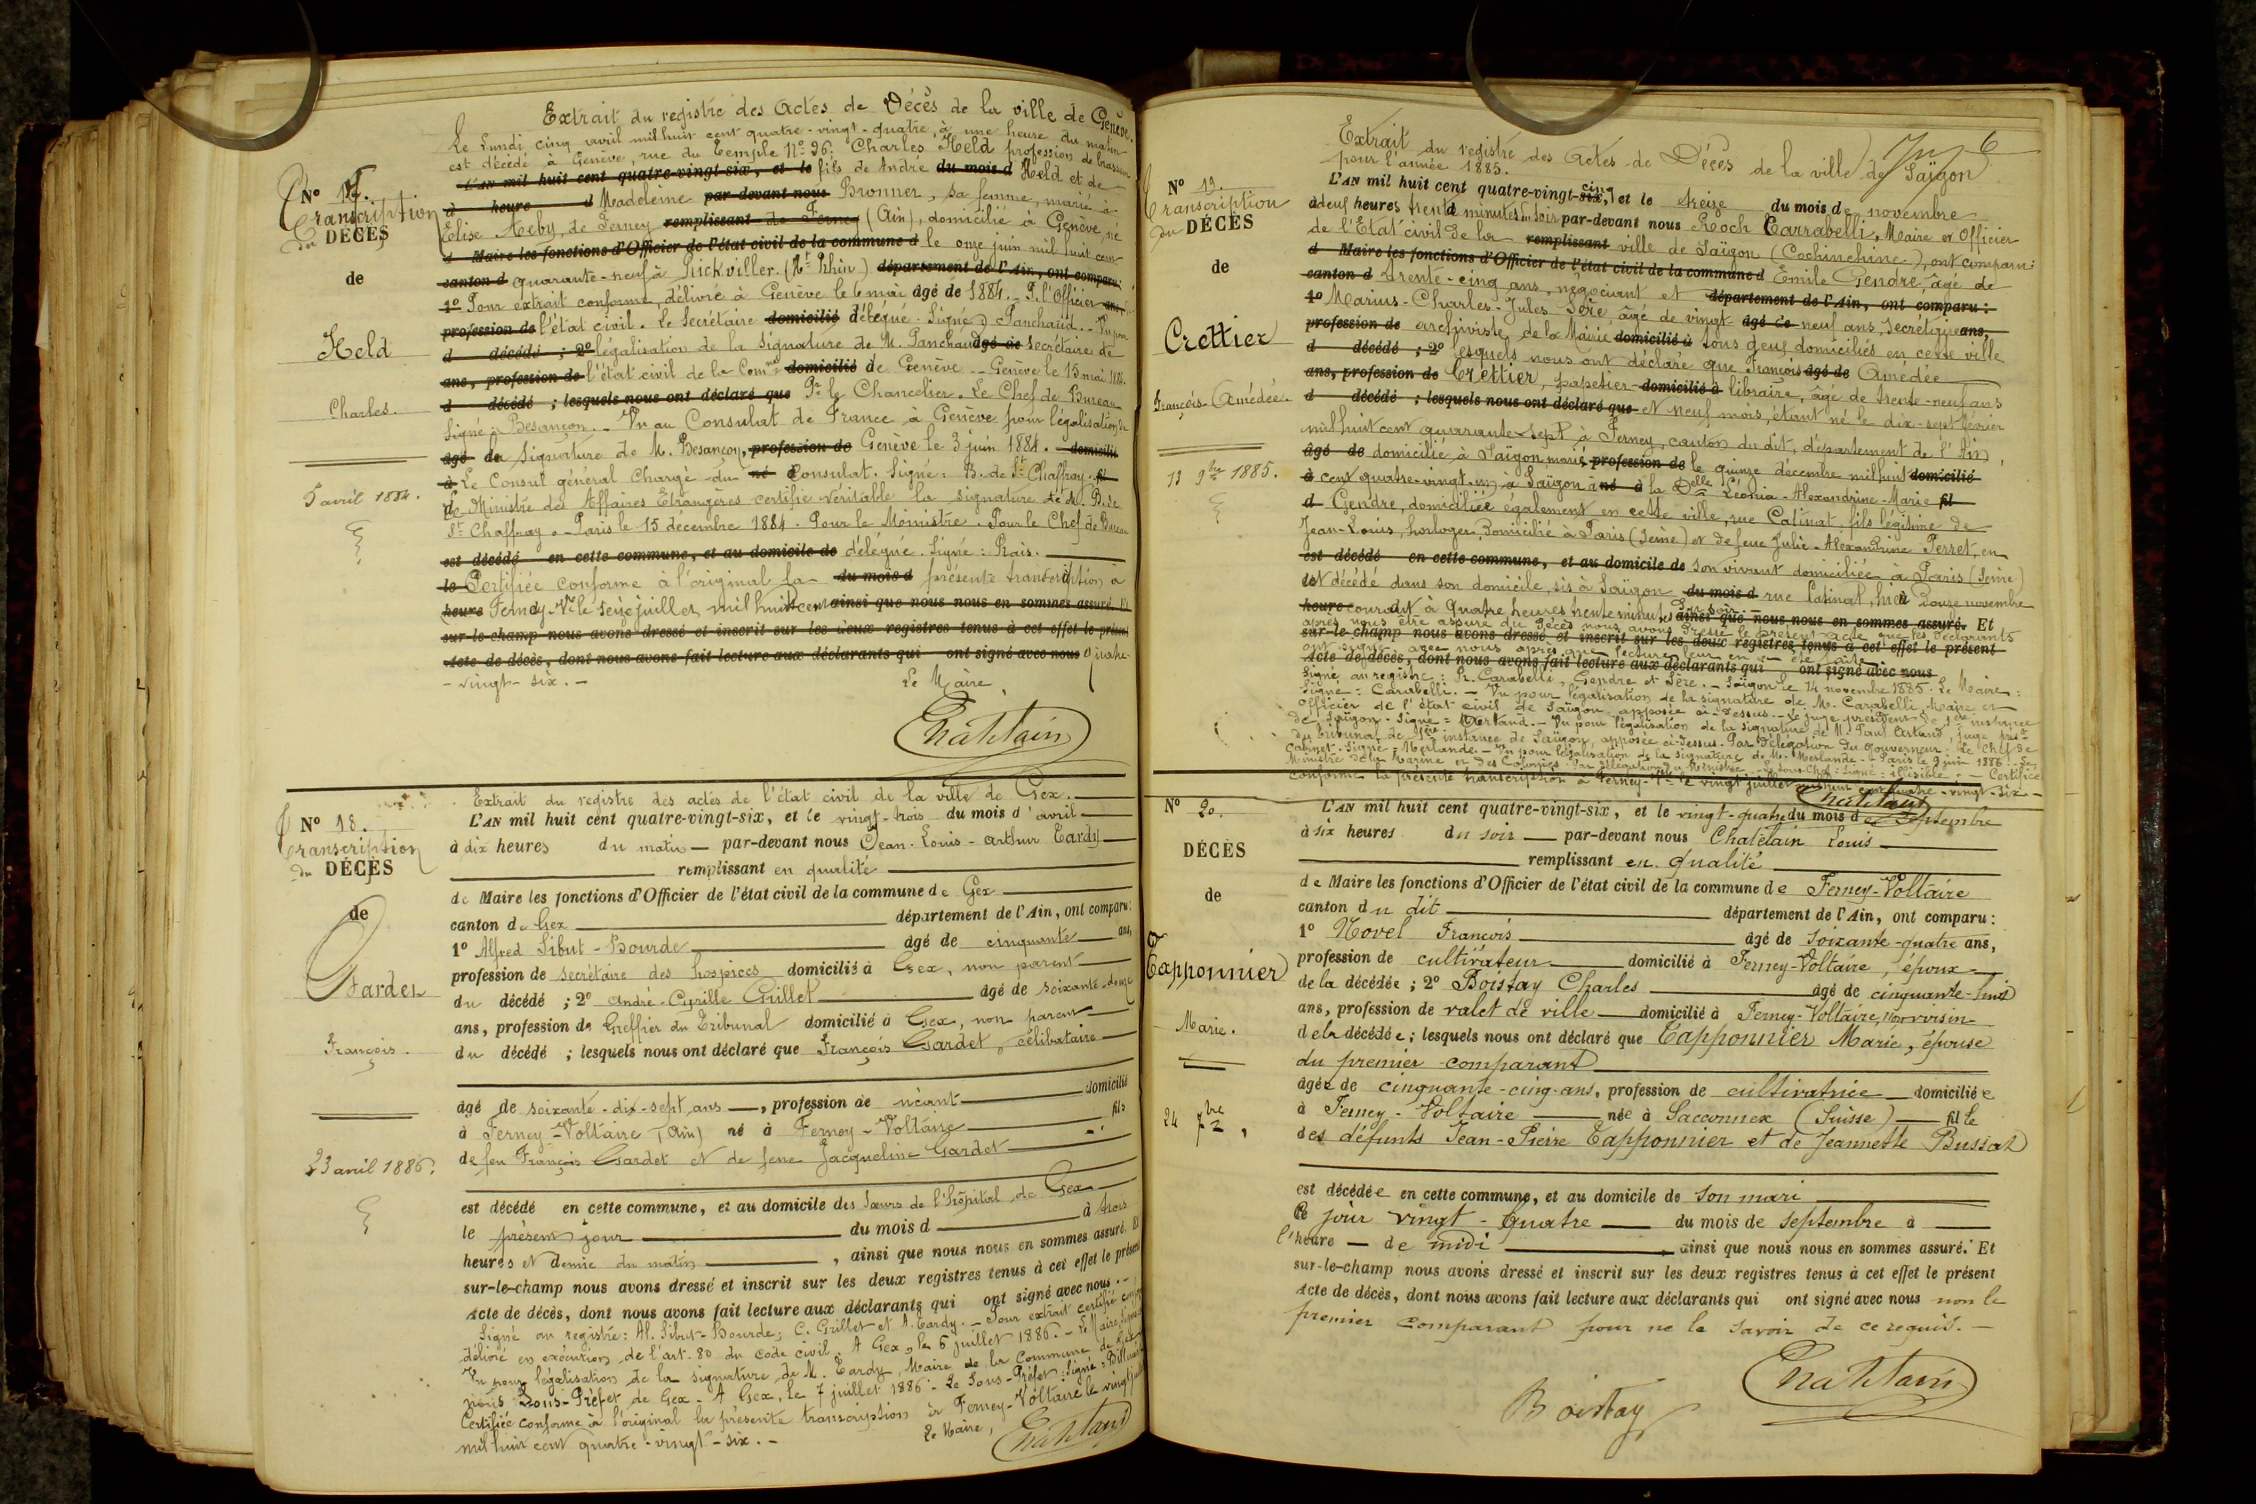 Extrait du registre des Actes de Décès de la ville de Genève.
Le Lundi cinq avril mil huit cent quatre-vingt-quatre, à une heure du matin
est décédé à Genève, rue du Temple No 26: Charles Held profession de brasseur
L'AN mil huit cent quatre-vingt-six, et le fils de André du mois d Held et de
à heure d Madeleine par-devant nous Bronner, sa femme, marié à
Elise Aeby, de Ferney remplissant de Ferney (Ain), domicilié à Genève, né
d Maire les fonctions d'Officier de l'état civil de la commune d le onze juin mil huit cent
canton d quarante-neuf à Rickviller (Ht Rhin) département de l'Ain, ont comparu:
1o Pour extrait conforme, délivré à Genève le 6 mai âgé de 1884. P. l'Officier ans,
profession de l'état civil. le Secrétaire domicilié délégué. Signé: Panchaud. - Vu pour
d décédé ; 2o légalisation de la signature de M. Panchaud âgé de secrétaire de
ans, profession de l'état civil de la Comne domicilié de Genève - Genève le 15 mai 1884.
d décédé ; lesquels nous ont déclaré que Pr le Chancelier. Le Chef de Bureau
Signé: Besançon. - Vu au Consulat de France à Genève pour légalisation de
âgé de la signature de M. Besançon, profession de Genève le 3 juin 1884. domicilié
à Le Consul général Chargé du né Consulat. Signé: B. de St Chaffray. fil
Le Ministre des Affaires Etrangères certifie véritable la signature de M. B. de
St Chaffray. - Paris le 15 décembre 1884. Pour le Ministre. Pour le Chef de Bureau
est décédé en cette commune, et au domicile de délégué. Signé: Rais.
le Certifiée conforme à l'original la du mois d présente transcription à
heure Ferney-Vre le seize juillet, mil huit cent ainsi que nous nous en sommes assuré. Et
sur-le-champ nous avons dressé et inscrit sur les deux registres tenus à cet effet le présent
Acte de décès, dont nous avons fait lecture aux déclarants qui ont signé avec nous quatre-
-vingt-six. -
Le Maire
Châtelain
No 17.
Transcription
du DÉCÈS
de
Held
Charles.
5 avril 1884.
No 18.
Transcription
du DÉCÈS
de
Gardet
François.
23 avril 1886.
Extrait du registre des actes de l'état civil de la ville de Gex.
L'AN mil huit cent quatre-vingt-six, et le vingt-trois du mois d'avril
à dix heures du matin par-devant nous Jean-Louis-Arthur Tardy
remplissant en qualité
de Maire les fonctions d'Officier de l'état civil de la commune de Gex
canton de Gex département de l'Ain, ont comparu:
1o Alfred Sibut-Bourde âgé de cinquante ans,
profession de secrétaire des hospices domicilié à Gex, non parent
du décédé ; 2o André-Cyrille Grillet âgé de soixante-douze
ans, profession de Greffier du Tribunal domicilié à Gex, non parent
du décédé ; lesquels nous ont déclaré que François Gardet, célibataire
âgé de soixante-dix-sept ans, profession de néant domicilié
à Ferney-Voltaire (Ain) né à Ferney-Voltaire fils
de feu François Gardet et de feue Jacqueline Gardet
est décédé en cette commune, et au domicile des Sœurs de l'hôpital de Gex
le présent jour du mois d à trois
heures et demie du matin, ainsi que nous nous en sommes assuré. Et
sur-le-champ nous avons dressé et inscrit sur les deux registres tenus à cet effet le présent
Acte de décès, dont nous avons fait lecture aux déclarants qui ont signé avec nous. -
Signé au registre: Al. Sibut-Bourde; C. Grillet et A. Tardy. - Pour extrait certifié conforme
délivré en exécution de l'art. 80 du Code civil. A Gex, le 6 juillet 1886. - Le Maire, Signé:
Vu pour légalisation de la signature de M. Tardy, Maire de la Commune de Gex
nous Sous-Préfet de Gex. A Gex, le 7 juillet 1886. Le Sous-Préfet: Signé:
Certifiée conforme à l'original la présente transcription à Ferney-Voltaire le vingt juillet
mil huit cent quatre-vingt-six. -
Le Maire,
Châtelain
6
Extrait du registre des Actes de Décès de la ville de Saïgon
pour l'année 1885.
No 19.
Transcription
du DÉCÈS
de
Crettier
François-Amédée.
13 9bre 1885.
L'AN mil huit cent quatre-vingt-six, cinq et le treize du mois de novembre
à deux heures trente minutes du soir par-devant nous Roch Carrabelli, Maire et Officier
de l'Etat civil de la remplissant ville de Saïgon (Cochinchine), ont comparu:
d Maire les fonctions d'Officier de l'état civil de la commune d Emile Gendre, âgé de
canton d trente-cinq ans, négociant et département de l'Ain, ont comparu:
1o Marius-Charles-Jules Sère âgé de vingt-âgé de neuf ans, secrétaire ans,
profession de archiviste de la Mairie domicilié à tous deux domiciliés en cette ville
d décédé ; 2o lesquels nous ont déclaré que François âgé de Amedée
ans, profession de Crettier, papetier-domicilié à libraire, âgé de trente-neuf ans
d décédé ; lesquels nous ont déclaré que et neuf mois, étant né le dix-sept février
mil huit cent quarante-sept à Ferney, canton du dit, département de l'Ain,
âgé de domicilié à Saïgon, marié profession de le quinze décembre mil huit domicilié
à cent quatre-vingt-un à Saïgon à né à la Delle Léonia-Alexandrine-Marie fil
d Gendre, domiciliée également en cette ville, rue Catinat, fils légitime de
Jean-Louis, horloger, Domicilié à Paris (Seine) et de feue Julie-Alexandrine Perret, en
est décédé en cette commune, et au domicile de son vivant domiciliée à Paris (Seine)
le est décédé dans son domicile, sis à Saïgon du mois d rue Catinat, hier à Douze novembre
heure courant à quatre heures trente minutes du soir ainsi que nous nous en sommes assuré. Et
après nous être assuré du Décès nous avons Dressé le présent acte que les Déclarants
sur-le-champ nous avons dressé et inscrit sur les deux registres tenus à cet effet le présent
ont signé avec nous après que lecture leur en a été faite.
Acte de décès, dont nous avons fait lecture aux déclarants qui ont signé avec nous
Signé au registre: R. Carabelli, Gendre et Sère. - Saïgon le 14 novembre 1885. Le Maire:
Signé: Carabelli. - Vu pour légalisation de la signature de M. Carabelli, Maire et
Officier de l'état civil de Saïgon, apposée ci-dessus. - Le Juge président de 1ère instance
de Saïgon. Signé: - Vu pour légalisation de la signature de M. Paul, juge prést
du tribunal de 1ère instance de Saïgon, apposée ci-dessus. Par délégation du Gouverneur. Le chef de
Cabinet. Signé: Merlande. - Vu pour légalisation de la signature de M. Merlande. - Paris le 9 juin 1886. - Le
Ministre de la Marine et des Colonies. Par délégation du Ministre. - Le Sous-Chef: Signé: illisible. - Certifiée
conforme la présente transcription à Ferney-Vre le vingt juillet mil huit cent quatre-vingt-six -
Châtelain
No 20.
DÉCÈS
de
Tapponnier
Marie.
24 7bre
L'AN mil huit cent quatre-vingt-six, et le vingt-quatre du mois de Septembre
à six heures du soir par-devant nous Chatelain Louis
remplissant en qualité
de Maire les fonctions d'Officier de l'état civil de la commune de Ferney-Voltaire
canton du dit département de l'Ain, ont comparu:
1o Novel François âgé de soixante-quatre ans,
profession de cultivateur domicilié à Ferney-Voltaire, époux
de la décédée ; 2o Boistay Charles âgé de cinquante-huit
ans, profession de valet de ville domicilié à Ferney-Voltaire, voisin
de la décédée ; lesquels nous ont déclaré que Tapponnier Marie, épouse
du premier comparant
âgée de cinquante-cinq-ans, profession de cultivatrice domiciliée
à Ferney-Voltaire née à Sacconnex (Suisse) fille
des défunts Jean-Pierre Tapponnier et de Jeannette Bussat
est décédée en cette commune, et au domicile de son mari
ce jour vingt-quatre du mois de septembre à
l'heure de midi ainsi que nous nous en sommes assuré. Et
sur-le-champ nous avons dressé et inscrit sur les deux registres tenus à cet effet le présent
Acte de décès, dont nous avons fait lecture aux déclarants qui ont signé avec nous non le
premier comparant pour ne le savoir de ce requis. -
Châtelain
Boistay